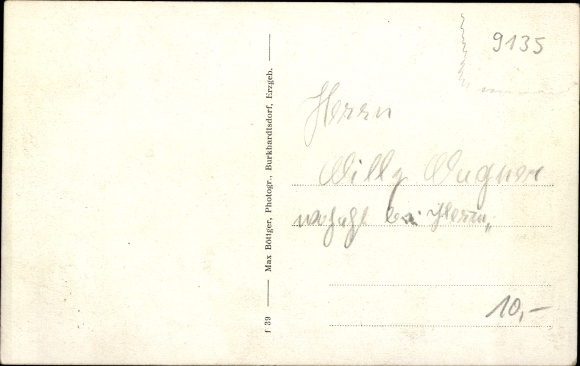 9135
Herrn
Willy Wagner
wohnhft bei Herrn
10,-
f 39 Max Böttger, Photogr., Burkhardtsdorf, Erzgeb.